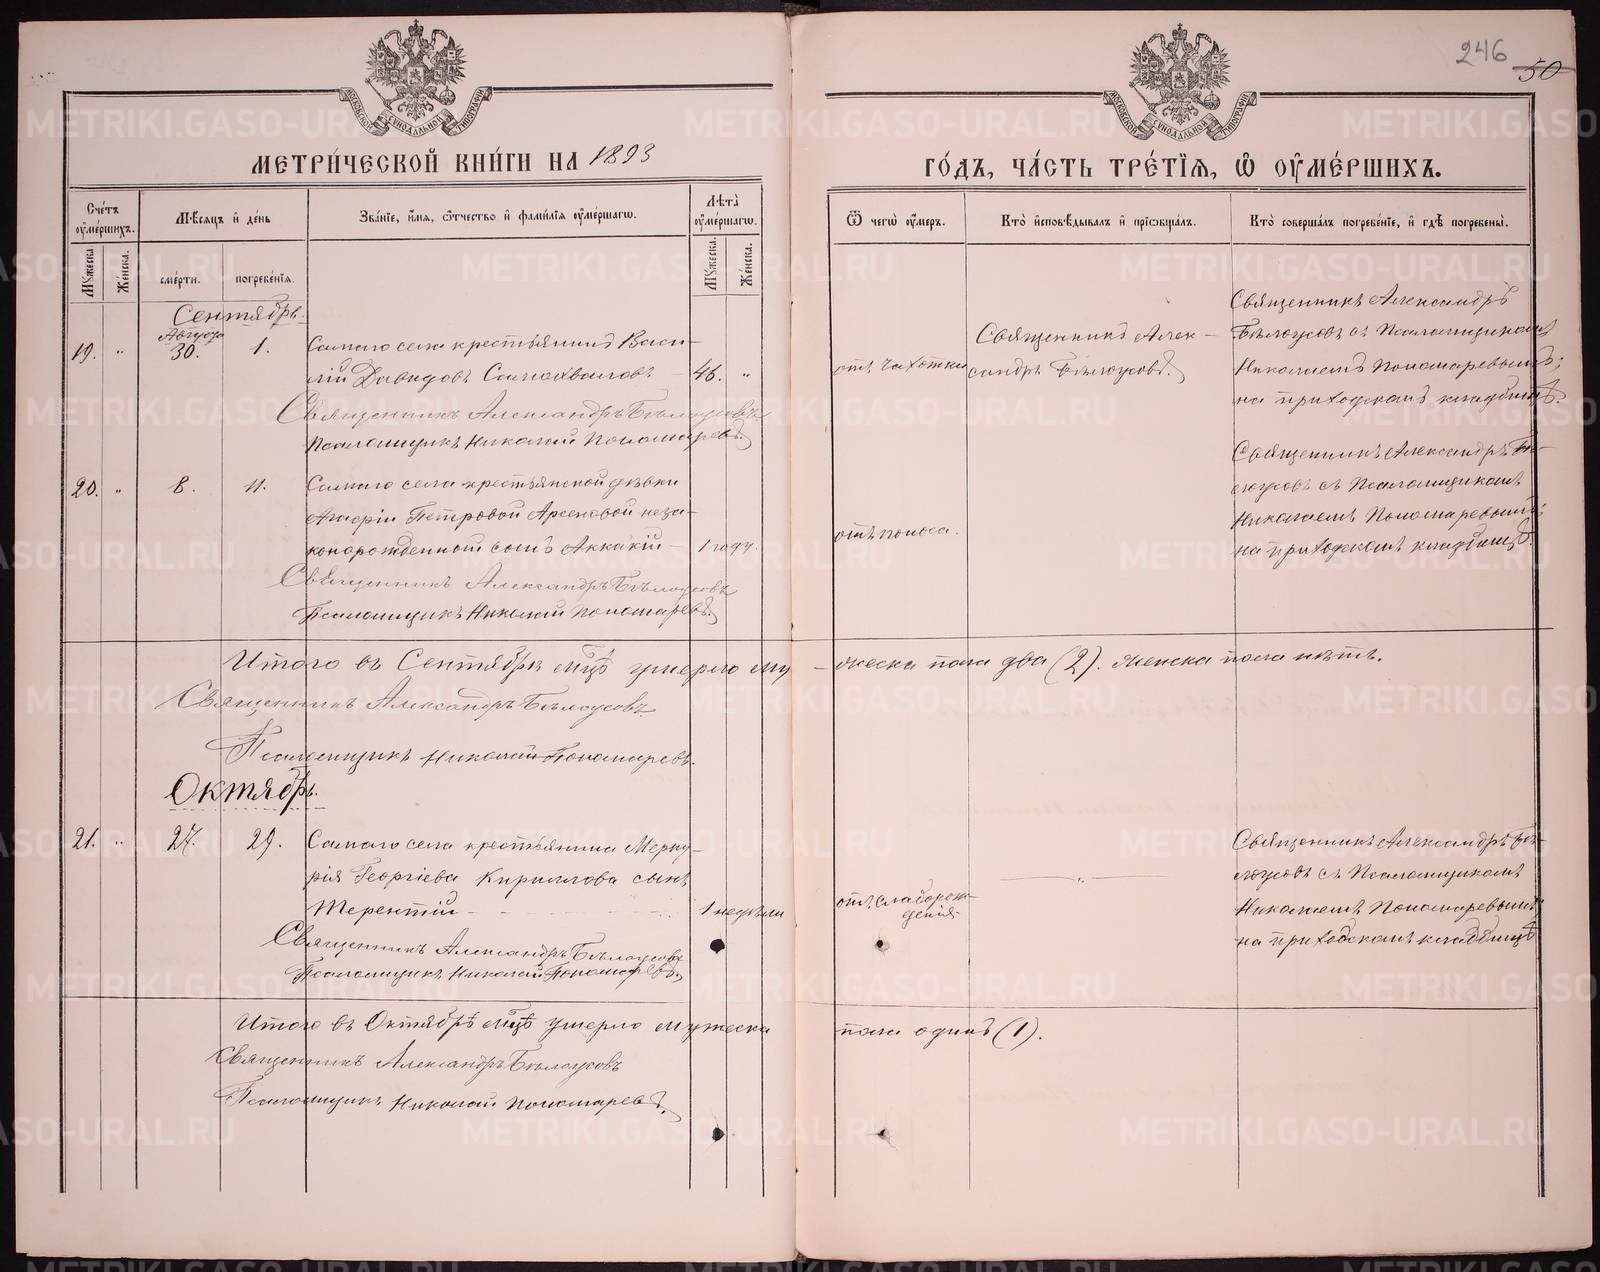 246
50
МОСКОВСКОЙ СУНОДАЛЬНОЙ ТИПОГРАФІИ
МОСКОВСКОЙ СУНОДАЛЬНОЙ ТИПОГРАФІИ
МЕТРИ́ЧЕСКОЙ КНИ́ГИ НА 1893
ГО́ДЪ, ЧА́СТЬ ТРЕ́ТЇѦ, Ѽ ОУМЕ́РШИХЪ.
Сче́тъ оуме́ршихъ.
Мѣ́сѧцъ и де́нь
Зва́нїе, и́мѧ, ѿтчество и фами́лїѧ оуме́ршагѡ.
Лѣта̀ оуме́ршагѡ.
Ѿ чегѡ̀ оу́меръ.
Кто̀ исповѣ́дывалъ и прїѡбща́лъ.
Кто̀ соверша́лъ погребе́нїе, и гдѣ̀ погребены̀.
Мꙋ́жеска
Же́нска.
сме́рти.
погребе́нїѧ.
Мꙋ́жеска.
Же́нска.
Сентябрь.
Августа
19. " 30. 1. Самаго села крестьянинъ Васи-
лій Давидовъ Самохваловъ — 46. "
Священникъ Александръ Бѣлоусовъ
Псаломщикъ Николай Пономаревъ.
отъ чахотки
Священникъ Алек-
сандръ Бѣлоусовъ.
Священникъ Александръ
Бѣлоусовъ съ Псаломщикомъ
Николаемъ Пономаревымъ;
на приходскомъ кладбищѣ.
20. " 8. 11. Самаго села крестьянской дѣвки
Петровой Арсеновой неза-
коннорожденной сынъ Аккакій — 1 году.
Священникъ Александръ Бѣлоусовъ
Псаломщикъ Николай Пономаревъ.
отъ поноса.
Священникъ Александръ Бѣ-
лоусовъ съ Псаломщикомъ
Николаемъ Пономаревымъ;
на приходскомъ кладбищѣ.
Итого въ Сентябрѣ мцѣ умерло му-
жеска пола два (2). женска пола нѣтъ.
Священникъ Александръ Бѣлоусовъ
Псаломщикъ Николай Пономаревъ.
Октябрь.
21. " 27. 29. Самаго села крестьянина Мерку-
рія Георгіева Кириллова сынъ
Терентій — 1 недѣли
Священникъ Александръ Бѣлоусовъ
Псаломщикъ Николай Пономаревъ.
отъ слаборож-
денія.
"
Священникъ Александръ Бѣ-
лоусовъ съ Псаломщикомъ
Николаемъ Пономаревымъ
на приходскомъ кладбищѣ
Итого въ Октябрѣ мцѣ умерло мужеска
пола одинъ (1).
Священникъ Александръ Бѣлоусовъ
Псаломщикъ Николай Пономаревъ.
METRIKI.GASO-URAL.RU